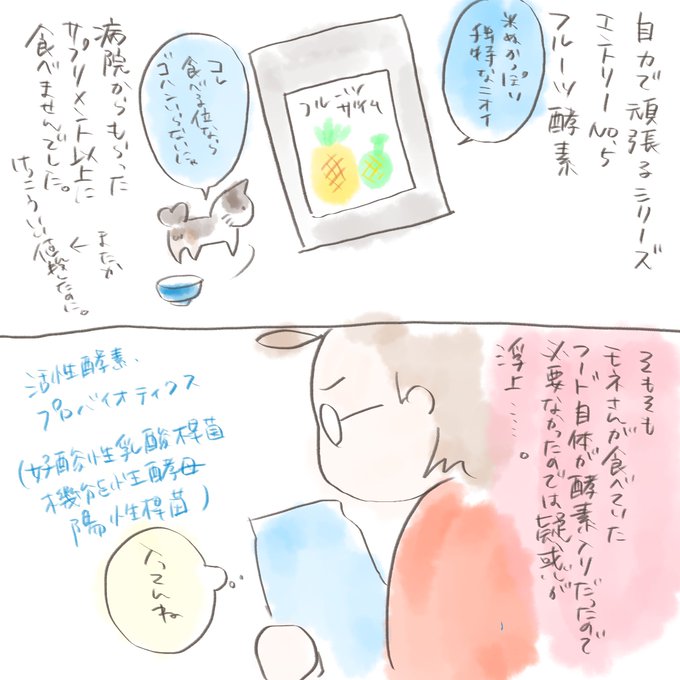 自力で頑張るシリーズ
エントリーNo.5
フルーツ酵素
米ぬかっぽい
独特なニオイ
フルーツ
ザイム
コレ
食べる位なら
ゴハンいらないにゃ
病院からもらった
サプリメント以上に
食べませんでした。
またか
←
けっこういい値段したのに。
そもそも
モネさんが食べていた
フード自体が酵素入りだったので
必要なかったのでは疑惑が
浮上……。
活性酵素、
プロバイオティクス
(好酸性乳酸桿菌
機能性酵母
陽性桿菌)
入ってんね